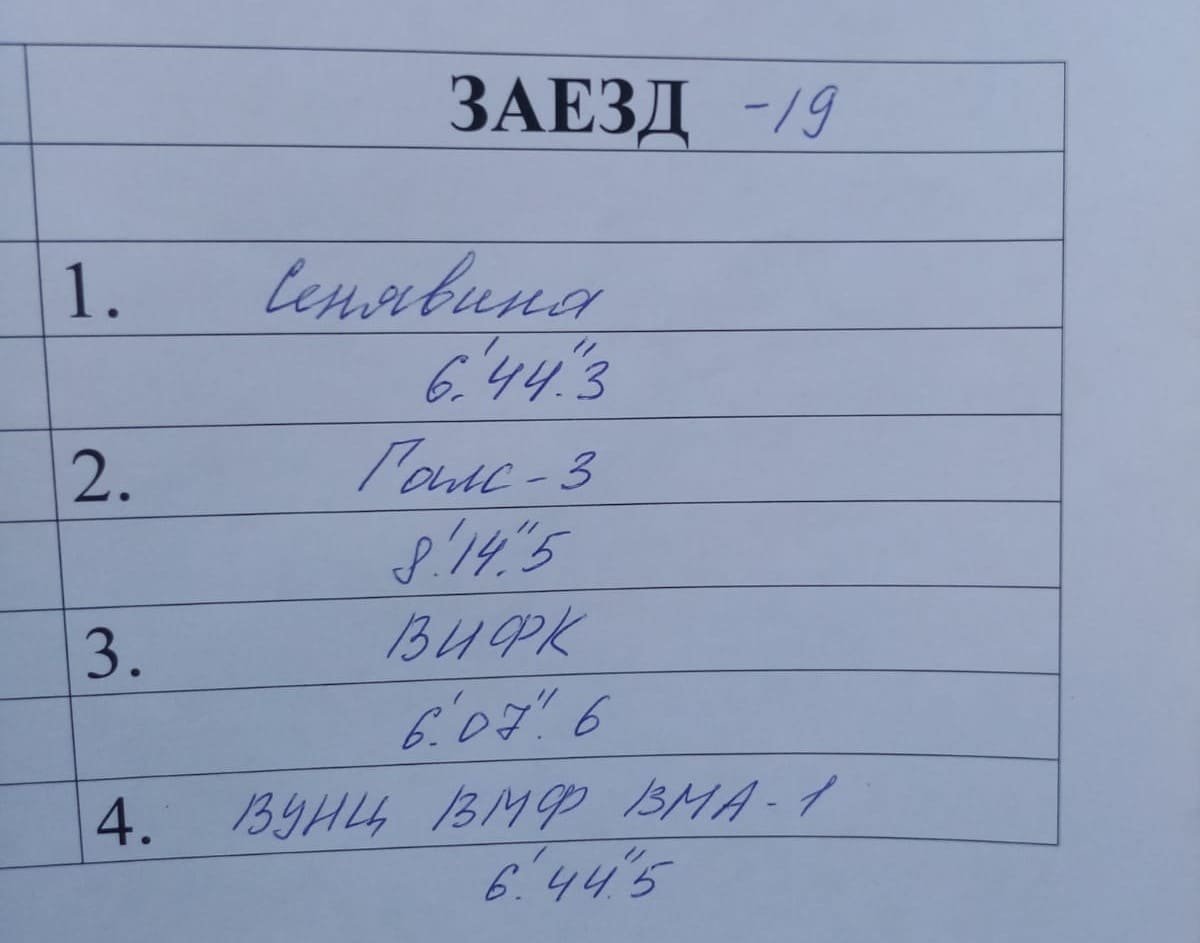 ЗАЕЗД -19
1. Сенявина
6.'44."3
2. Галс-3
8.'14."5
3. ВИФК
6.'07."6
4. ВУНЦ ВМФ ВМА-1
6.'44."5